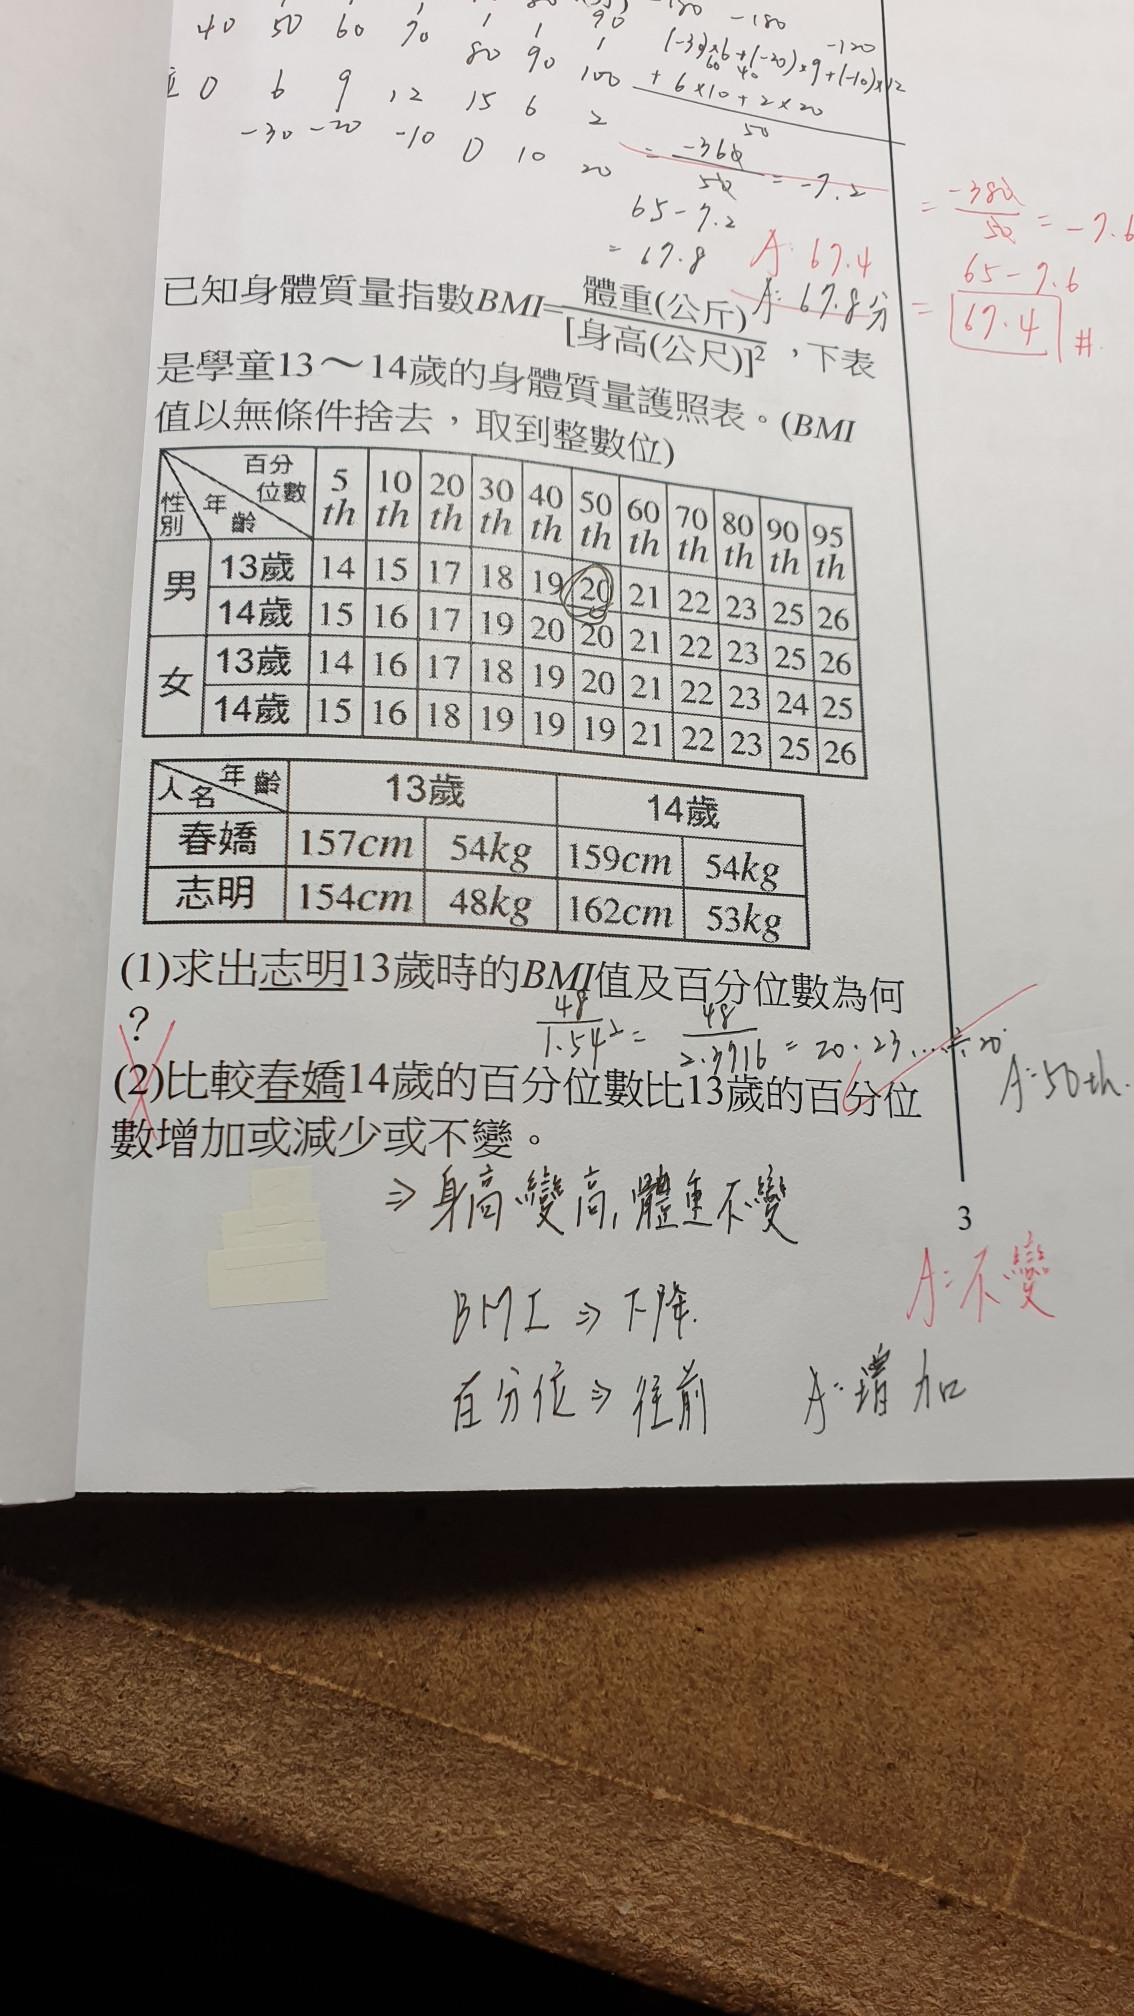 40 50 60 70 80 90 100
0 6 9 12 15 6 2
-30 -20 -10 0 10 20
-180 -180 -120
(-30)×6+(-20)×9+(-10)×12
60 40
+6×10+2×20
50
= -360/50 = -7.2
65-7.2
= 67.8
A: 67.4
A: 67.8分
= -380/50 = -7.6
65-7.6
= 67.4 #
已知身體質量指數BMI=體重(公斤)/[身高(公尺)]²,下表
是學童13~14歲的身體質量護照表。(BMI
值以無條件捨去,取到整數位)
性別 年齡 百分位數 5th 10th 20th 30th 40th 50th 60th 70th 80th 90th 95th
男 13歲 14 15 17 18 19 20 21 22 23 25 26
14歲 15 16 17 19 20 20 21 22 23 25 26
女 13歲 14 16 17 18 19 20 21 22 23 24 25
14歲 15 16 18 19 19 19 21 22 23 25 26
人名 年齡 13歲 14歲
春嬌 157cm 54kg 159cm 54kg
志明 154cm 48kg 162cm 53kg
(1)求出志明13歲時的BMI值及百分位數為何
?
48/1.54² = 48/2.3716 = 20.23... 20
A:50th.
(2)比較春嬌14歲的百分位數比13歲的百分位
數增加或減少或不變。
⇒身高變高,體重不變
3
A:不變
BMI⇒下降.
百分位⇒往前
A:增加